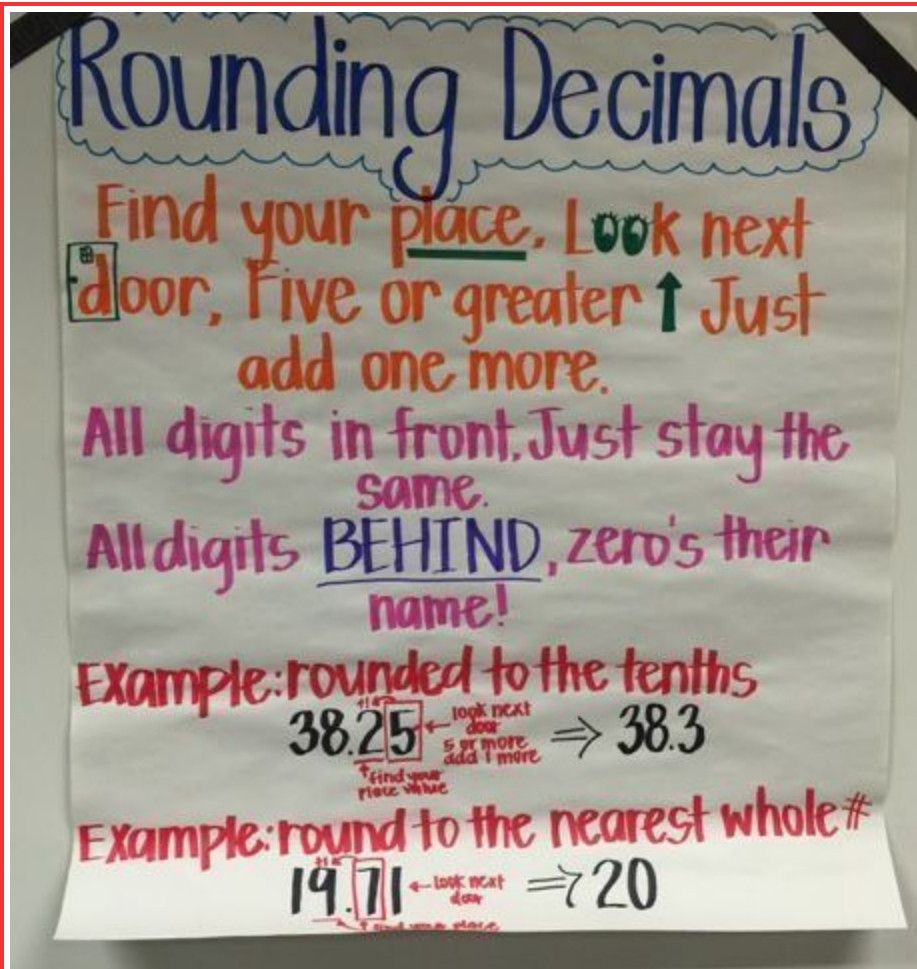 Rounding Decimals
Find your place. Look next
door, Five or greater ↑ Just
add one more.
All digits in front, Just stay the
same.
All digits BEHIND, zero's their
name!
Example: rounded to the tenths
+1
38.25 ← look next door 5 or more add 1 more ⇒ 38.3
↑ find your place value
Example: round to the nearest whole #
+1
19.71 ← look next door ⇒ 20
↑ find your place